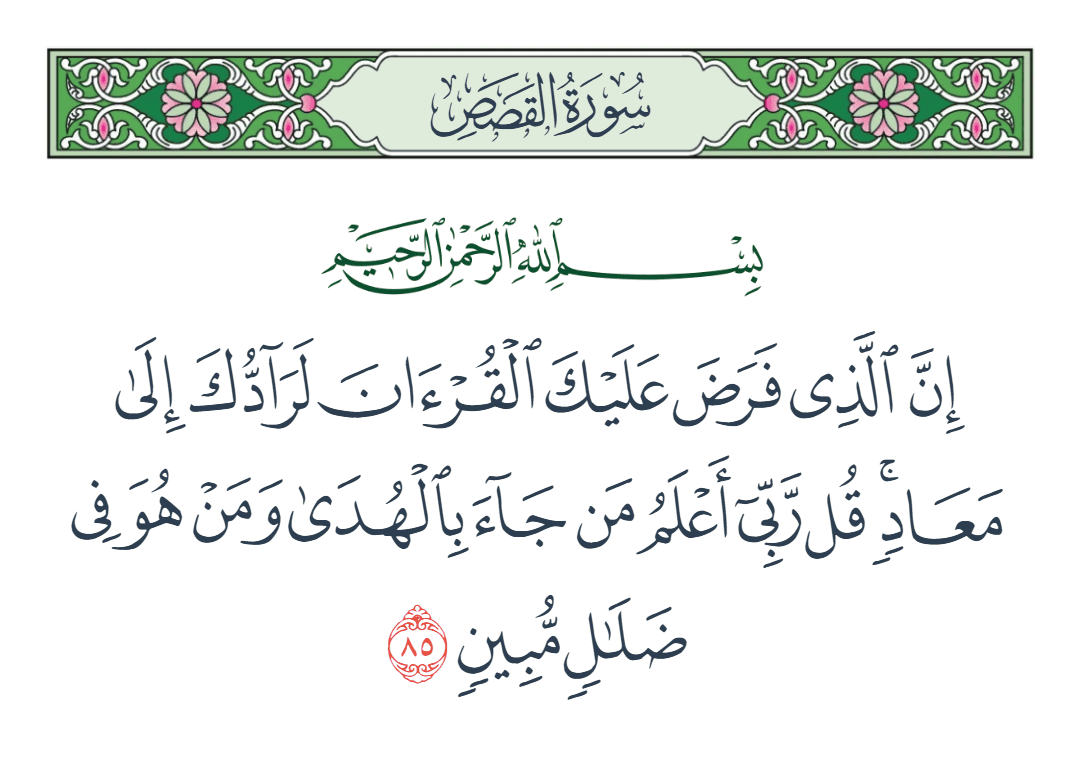 سُورَةُ القَصَصِ
بِسْمِ ٱللَّهِ ٱلرَّحْمَٰنِ ٱلرَّحِيمِ
إِنَّ ٱلَّذِى فَرَضَ عَلَيْكَ ٱلْقُرْءَانَ لَرَآدُّكَ إِلَىٰ
مَعَادٍۢ ۚ قُل رَّبِّىٓ أَعْلَمُ مَن جَآءَ بِٱلْهُدَىٰ وَمَنْ هُوَ فِى
ضَلَـٰلٍۢ مُّبِينٍۢ ٨٥